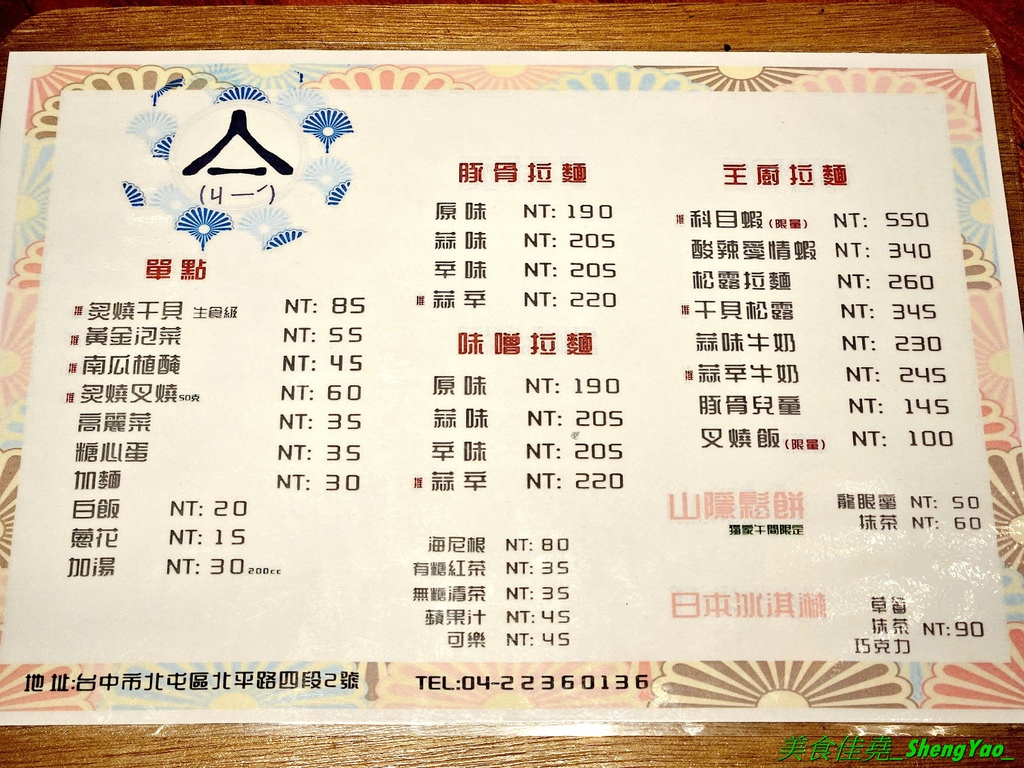 亼
(ㄐㄧˊ)
單點
推 炙燒干貝 生食級 NT: 85
推 黃金泡菜 NT: 55
推 南瓜植醃 NT: 45
推 炙燒叉燒50克 NT: 60
高麗菜 NT: 35
糖心蛋 NT: 35
加麵 NT: 30
白飯 NT: 20
蔥花 NT: 15
加湯 NT: 30 200cc
豚骨拉麵
原味 NT: 190
蒜味 NT: 205
辛味 NT: 205
推 蒜辛 NT: 220
味噌拉麵
原味 NT: 190
蒜味 NT: 205
辛味 NT: 205
推 蒜辛 NT: 220
海尼根 NT: 80
有糖紅茶 NT: 35
無糖清茶 NT: 35
蘋果汁 NT: 45
可樂 NT: 45
主廚拉麵
推 科目蝦(限量) NT: 550
酸辣愛情蝦 NT: 340
松露拉麵 NT: 260
推 干貝松露 NT: 345
蒜味牛奶 NT: 230
推 蒜辛牛奶 NT: 245
豚骨兒童 NT: 145
叉燒飯(限量) NT: 100
山隱鬆餅
獨家午間限定
龍眼蜜 NT: 50
抹茶 NT: 60
日本冰淇淋
草莓
抹茶 NT:90
巧克力
地址:台中市北屯區北平路四段2號
TEL:04-22360136
美食佳堯_ShengYao_